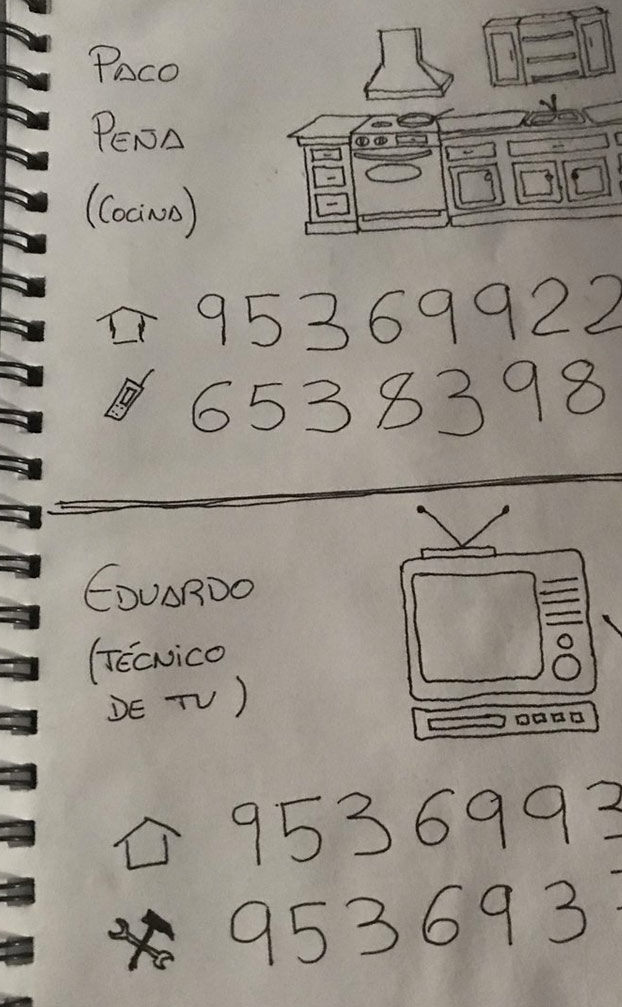 PACO
PEÑA
(COCINA)
95369922
6538398
EDUARDO
(TÉCNICO
DE TV)
9536993
953693